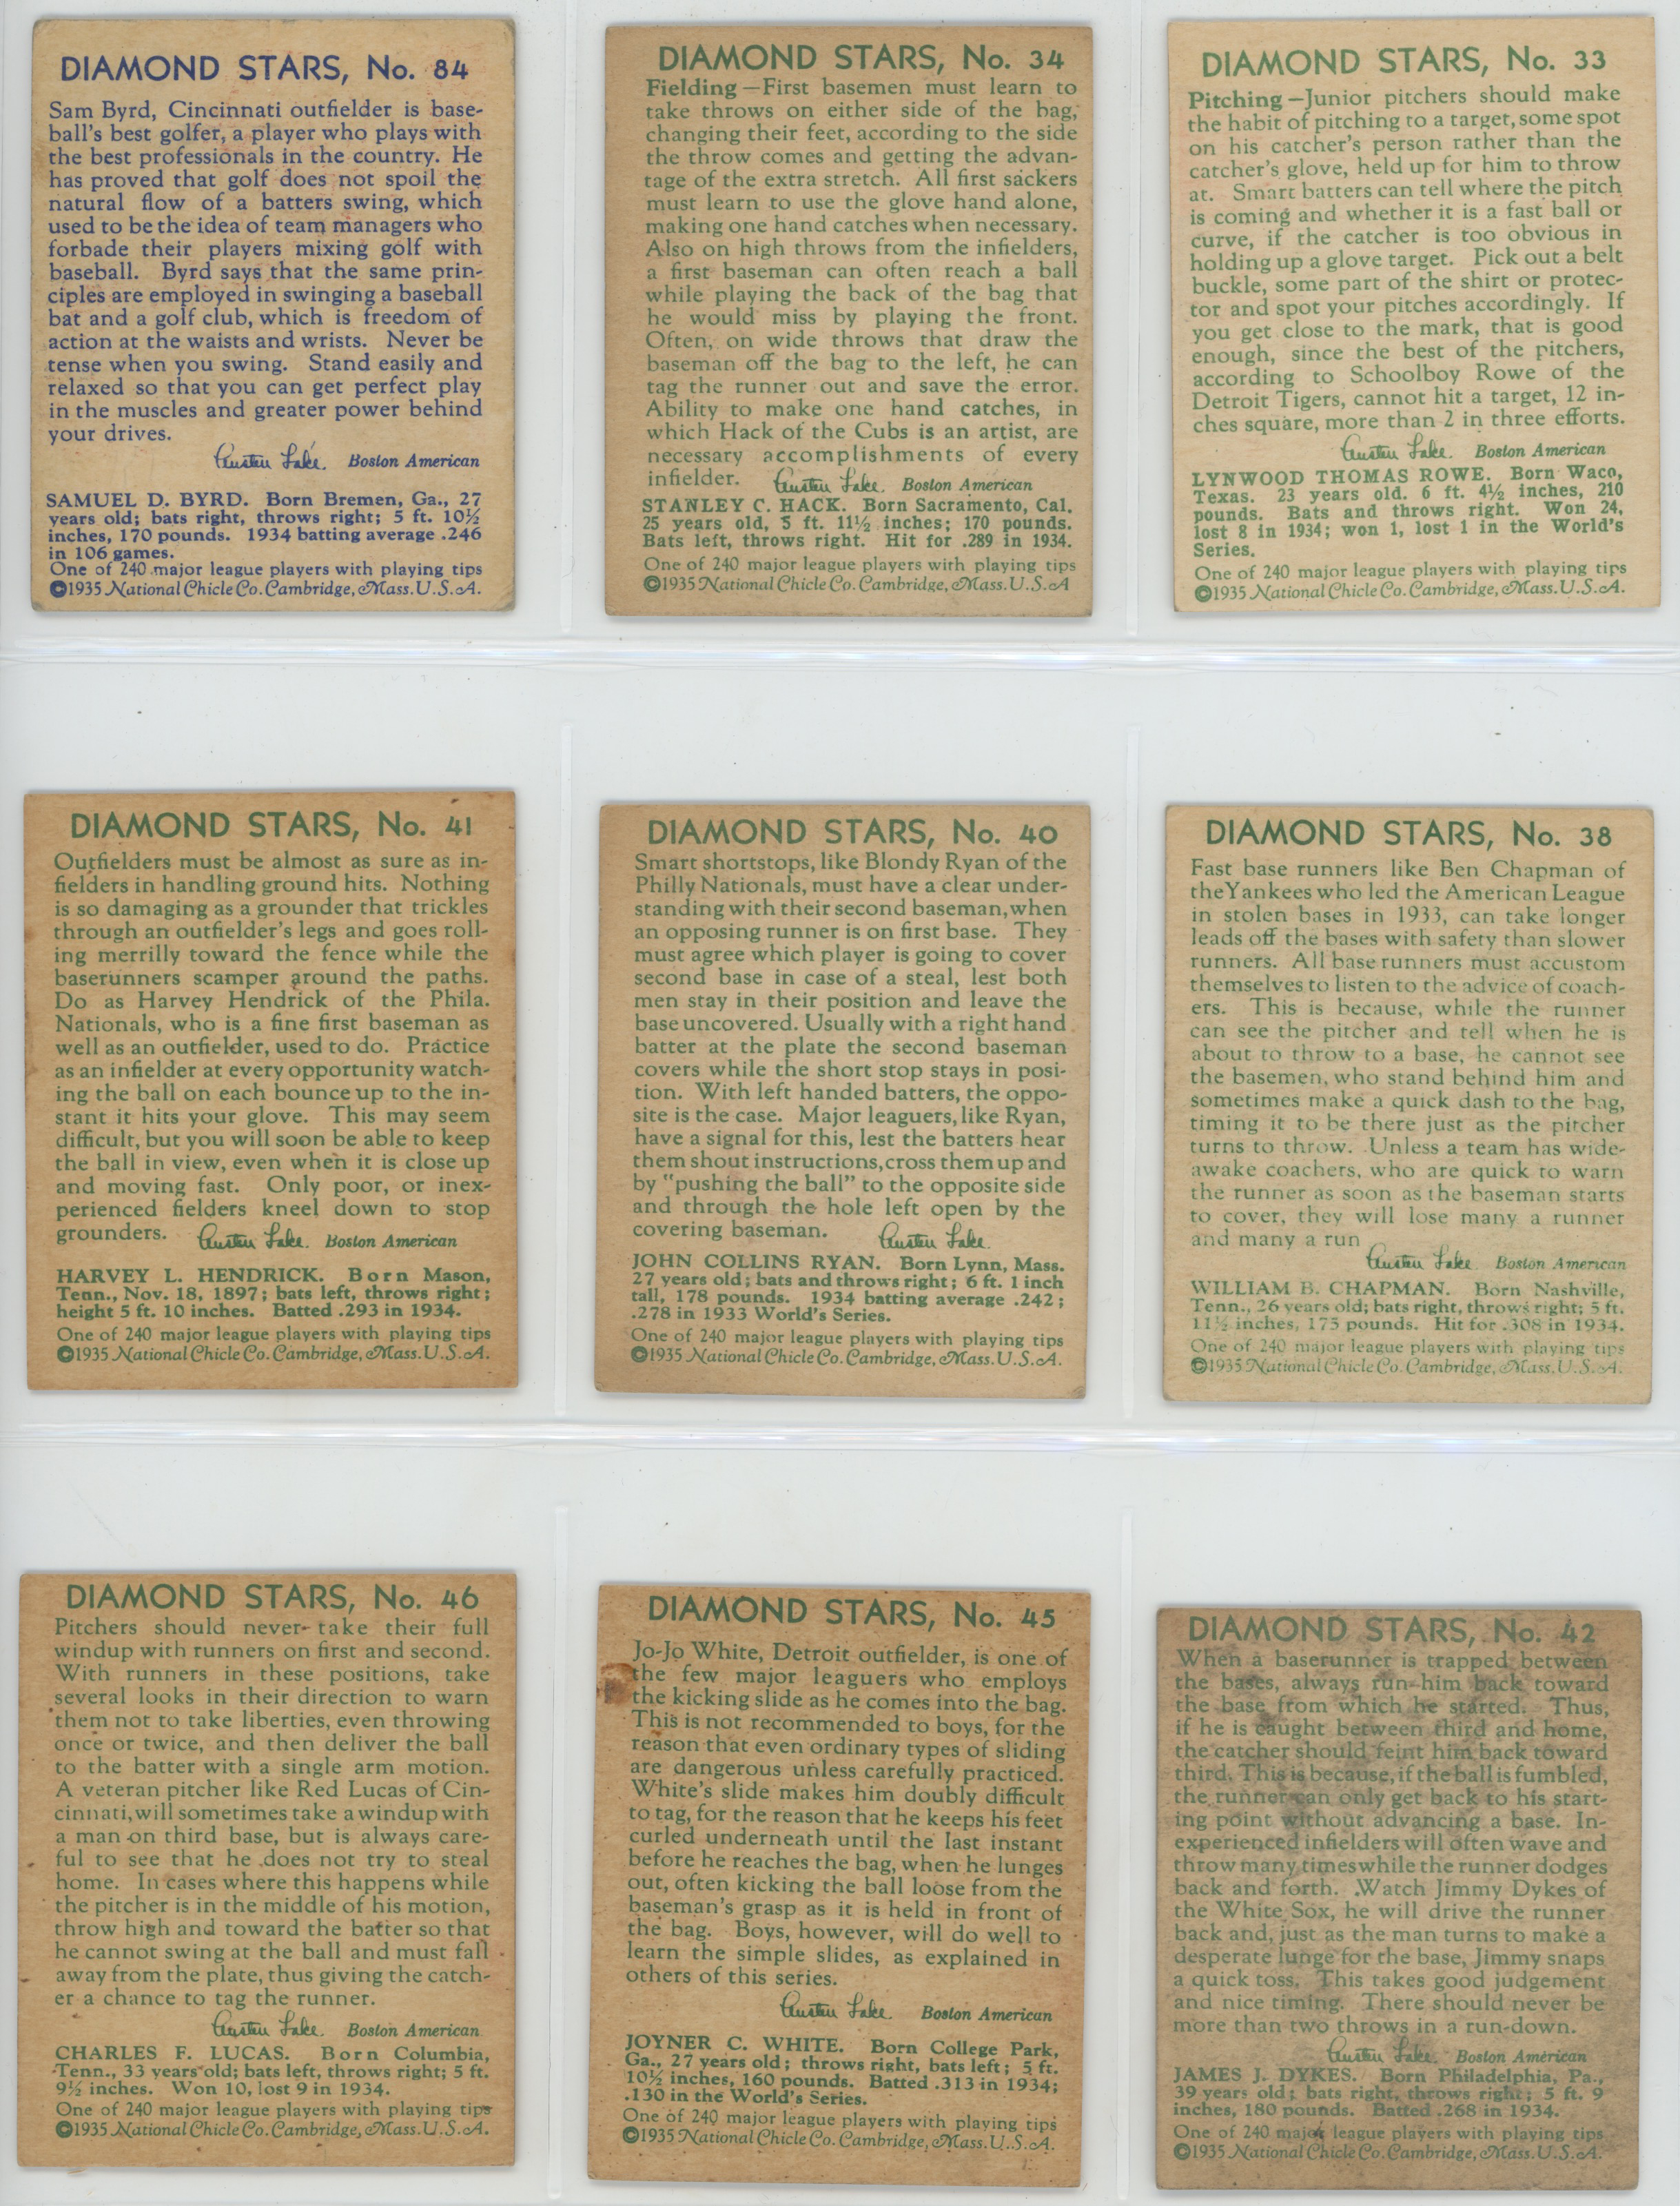 DIAMOND STARS, No. 84
Sam Byrd, Cincinnati outfielder is base-
ball's best golfer, a player who plays with
the best professionals in the country. He
has proved that golf does not spoil the
natural flow of a batters swing, which
used to be the idea of team managers who
forbade their players mixing golf with
baseball. Byrd says that the same prin-
ciples are employed in swinging a baseball
bat and a golf club, which is freedom of
action at the waists and wrists. Never be
tense when you swing. Stand easily and
relaxed so that you can get perfect play
in the muscles and greater power behind
your drives.
Austen Lake. Boston American
SAMUEL D. BYRD. Born Bremen, Ga., 27
years old; bats right, throws right; 5 ft. 10½
inches, 170 pounds. 1934 batting average .246
in 106 games.
One of 240 major league players with playing tips
©1935 National Chicle Co. Cambridge, Mass. U.S.A.
DIAMOND STARS, No. 34
Fielding—First basemen must learn to
take throws on either side of the bag,
changing their feet, according to the side
the throw comes and getting the advan-
tage of the extra stretch. All first sackers
must learn to use the glove hand alone,
making one hand catches when necessary.
Also on high throws from the infielders,
a first baseman can often reach a ball
while playing the back of the bag that
he would miss by playing the front.
Often, on wide throws that draw the
baseman off the bag to the left, he can
tag the runner out and save the error.
Ability to make one hand catches, in
which Hack of the Cubs is an artist, are
necessary accomplishments of every
infielder. Austen Lake. Boston American
STANLEY C. HACK. Born Sacramento, Cal.
25 years old, 5 ft. 11½ inches; 170 pounds.
Bats left, throws right. Hit for .289 in 1934.
One of 240 major league players with playing tips
©1935 National Chicle Co. Cambridge, Mass. U.S.A
DIAMOND STARS, No. 33
Pitching—Junior pitchers should make
the habit of pitching to a target, some spot
on his catcher's person rather than the
catcher's glove, held up for him to throw
at. Smart batters can tell where the pitch
is coming and whether it is a fast ball or
curve, if the catcher is too obvious in
holding up a glove target. Pick out a belt
buckle, some part of the shirt or protec-
tor and spot your pitches accordingly. If
you get close to the mark, that is good
enough, since the best of the pitchers,
according to Schoolboy Rowe of the
Detroit Tigers, cannot hit a target, 12 in-
ches square, more than 2 in three efforts.
Austen Lake. Boston American
LYNWOOD THOMAS ROWE. Born Waco,
Texas. 23 years old. 6 ft. 4½ inches, 210
pounds. Bats and throws right. Won 24,
lost 8 in 1934; won 1, lost 1 in the World's
Series.
One of 240 major league players with playing tips
©1935 National Chicle Co. Cambridge, Mass. U.S.A.
DIAMOND STARS, No. 41
Outfielders must be almost as sure as in-
fielders in handling ground hits. Nothing
is so damaging as a grounder that trickles
through an outfielder's legs and goes roll-
ing merrilly toward the fence while the
baserunners scamper around the paths.
Do as Harvey Hendrick of the Phila.
Nationals, who is a fine first baseman as
well as an outfielder, used to do. Practice
as an infielder at every opportunity watch-
ing the ball on each bounce up to the in-
stant it hits your glove. This may seem
difficult, but you will soon be able to keep
the ball in view, even when it is close up
and moving fast. Only poor, or inex-
perienced fielders kneel down to stop
grounders. Austen Lake. Boston American
HARVEY L. HENDRICK. Born Mason,
Tenn., Nov. 18, 1897; bats left, throws right;
height 5 ft. 10 inches. Batted .293 in 1934.
One of 240 major league players with playing tips
©1935 National Chicle Co. Cambridge, Mass. U.S.A.
DIAMOND STARS, No. 40
Smart shortstops, like Blondy Ryan of the
Philly Nationals, must have a clear under-
standing with their second baseman, when
an opposing runner is on first base. They
must agree which player is going to cover
second base in case of a steal, lest both
men stay in their position and leave the
base uncovered. Usually with a right hand
batter at the plate the second baseman
covers while the short stop stays in posi-
tion. With left handed batters, the oppo-
site is the case. Major leaguers, like Ryan,
have a signal for this, lest the batters hear
them shout instructions, cross them up and
by "pushing the ball" to the opposite side
and through the hole left open by the
covering baseman. Austen Lake.
JOHN COLLINS RYAN. Born Lynn, Mass.
27 years old; bats and throws right; 6 ft. 1 inch
tall, 178 pounds. 1934 batting average .242;
.278 in 1933 World's Series.
One of 240 major league players with playing tips
©1935 National Chicle Co. Cambridge, Mass. U.S.A.
DIAMOND STARS, No. 38
Fast base runners like Ben Chapman of
the Yankees who led the American League
in stolen bases in 1933, can take longer
leads off the bases with safety than slower
runners. All base runners must accustom
themselves to listen to the advice of coach-
ers. This is because, while the runner
can see the pitcher and tell when he is
about to throw to a base, he cannot see
the basemen, who stand behind him and
sometimes make a quick dash to the bag,
timing it to be there just as the pitcher
turns to throw. Unless a team has wide-
awake coachers, who are quick to warn
the runner as soon as the baseman starts
to cover, they will lose many a runner
and many a run
Austen Lake. Boston American
WILLIAM B. CHAPMAN. Born Nashville,
Tenn., 26 years old; bats right, throws right; 5 ft.
11½ inches, 175 pounds. Hit for .308 in 1934.
One of 240 major league players with playing tips
©1935 National Chicle Co. Cambridge, Mass. U.S.A.
DIAMOND STARS, No. 46
Pitchers should never take their full
windup with runners on first and second.
With runners in these positions, take
several looks in their direction to warn
them not to take liberties, even throwing
once or twice, and then deliver the ball
to the batter with a single arm motion.
A veteran pitcher like Red Lucas of Cin-
cinnati, will sometimes take a windup with
a man on third base, but is always care-
ful to see that he does not try to steal
home. In cases where this happens while
the pitcher is in the middle of his motion,
throw high and toward the batter so that
he cannot swing at the ball and must fall
away from the plate, thus giving the catch-
er a chance to tag the runner.
Austen Lake. Boston American
CHARLES F. LUCAS. Born Columbia,
Tenn., 33 years old; bats left, throws right; 5 ft.
9½ inches. Won 10, lost 9 in 1934.
One of 240 major league players with playing tips
©1935 National Chicle Co. Cambridge, Mass. U.S.A.
DIAMOND STARS, No. 45
Jo-Jo White, Detroit outfielder, is one of
the few major leaguers who employs
the kicking slide as he comes into the bag.
This is not recommended to boys, for the
reason that even ordinary types of sliding
are dangerous unless carefully practiced.
White's slide makes him doubly difficult
to tag, for the reason that he keeps his feet
curled underneath until the last instant
before he reaches the bag, when he lunges
out, often kicking the ball loose from the
baseman's grasp as it is held in front of
the bag. Boys, however, will do well to
learn the simple slides, as explained in
others of this series.
Austen Lake. Boston American
JOYNER C. WHITE. Born College Park,
Ga., 27 years old; throws right, bats left; 5 ft.
10½ inches, 160 pounds. Batted .313 in 1934;
.130 in the World's Series.
One of 240 major league players with playing tips
©1935 National Chicle Co. Cambridge, Mass. U.S.A.
DIAMOND STARS, No. 42
When a baserunner is trapped between
the bases, always run him back toward
the base from which he started. Thus,
if he is caught between third and home,
the catcher should feint him back toward
third. This is because, if the ball is fumbled,
the runner can only get back to his start-
ing point without advancing a base. In-
experienced infielders will often wave and
throw many times while the runner dodges
back and forth. Watch Jimmy Dykes of
the White Sox, he will drive the runner
back and, just as the man turns to make a
desperate lunge for the base, Jimmy snaps
a quick toss. This takes good judgement
and nice timing. There should never be
more than two throws in a run-down.
Austen Lake. Boston American
JAMES J. DYKES. Born Philadelphia, Pa.,
39 years old; bats right, throws right; 5 ft. 9
inches, 180 pounds. Batted .268 in 1934.
One of 240 major league players with playing tips
©1935 National Chicle Co. Cambridge, Mass. U.S.A.